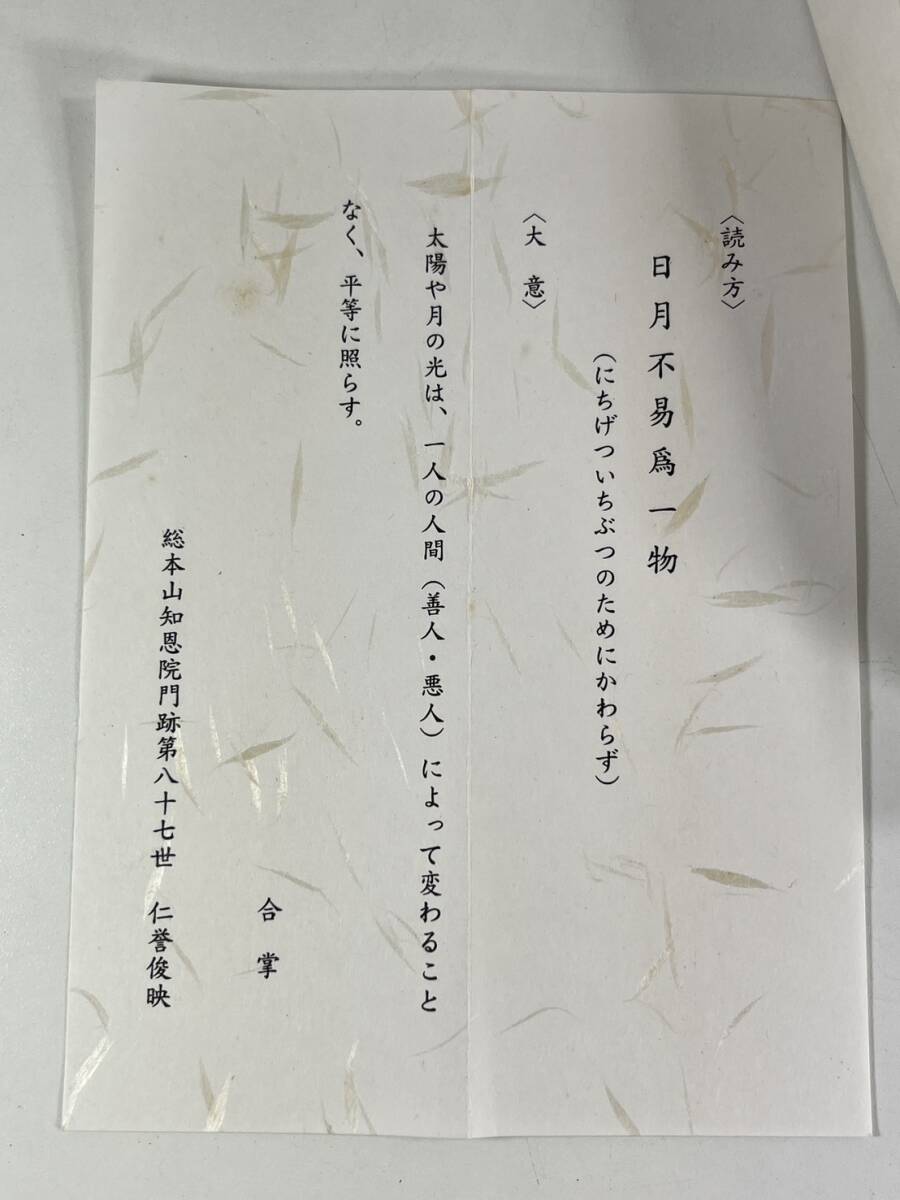 〈読み方〉
日月不易爲一物
(にちげついちぶつのためにかわらず)
〈大 意〉
太陽や月の光は、一人の人間(善人・悪人)によって変わること
なく、平等に照らす。
合 掌
総本山知恩院門跡第八十七世 仁誉俊映